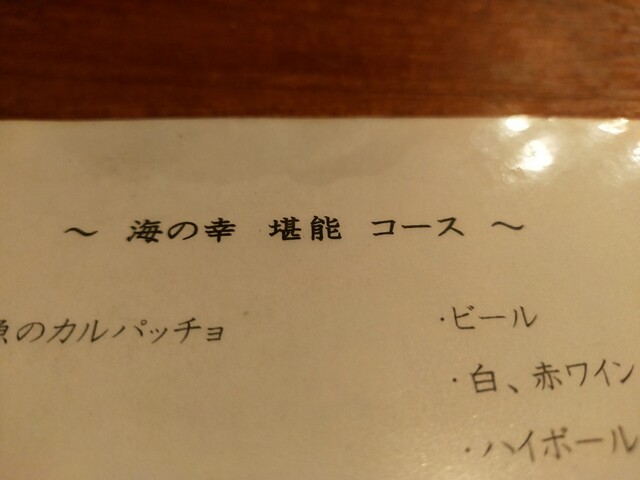 ～ 海の幸 堪能 コース ～
魚のカルパッチョ
・ビール
・白、赤ワイン
・ハイボール